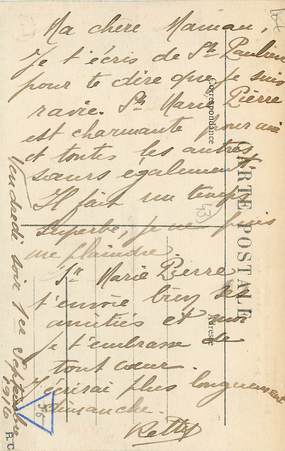 Ma chere Maman,
Je t'écris de Ste Paulien
pour te dire que je suis
ravie. Sr Marie Pierre
est charmante pour moi
et toutes les autres
sœurs également.
Il fait un temps
superbe, je ne puis
me plaindre
Sr Marie Pierre
t'envoie bien ses
amitiés et moi
je t'embrasse de
tout cœur.
J'écrirai plus longuement
dimanche.
Ketty
Vendredi soir 1er Septembre
CARTE POSTALE
Correspondance
Adresse
43
R.C.